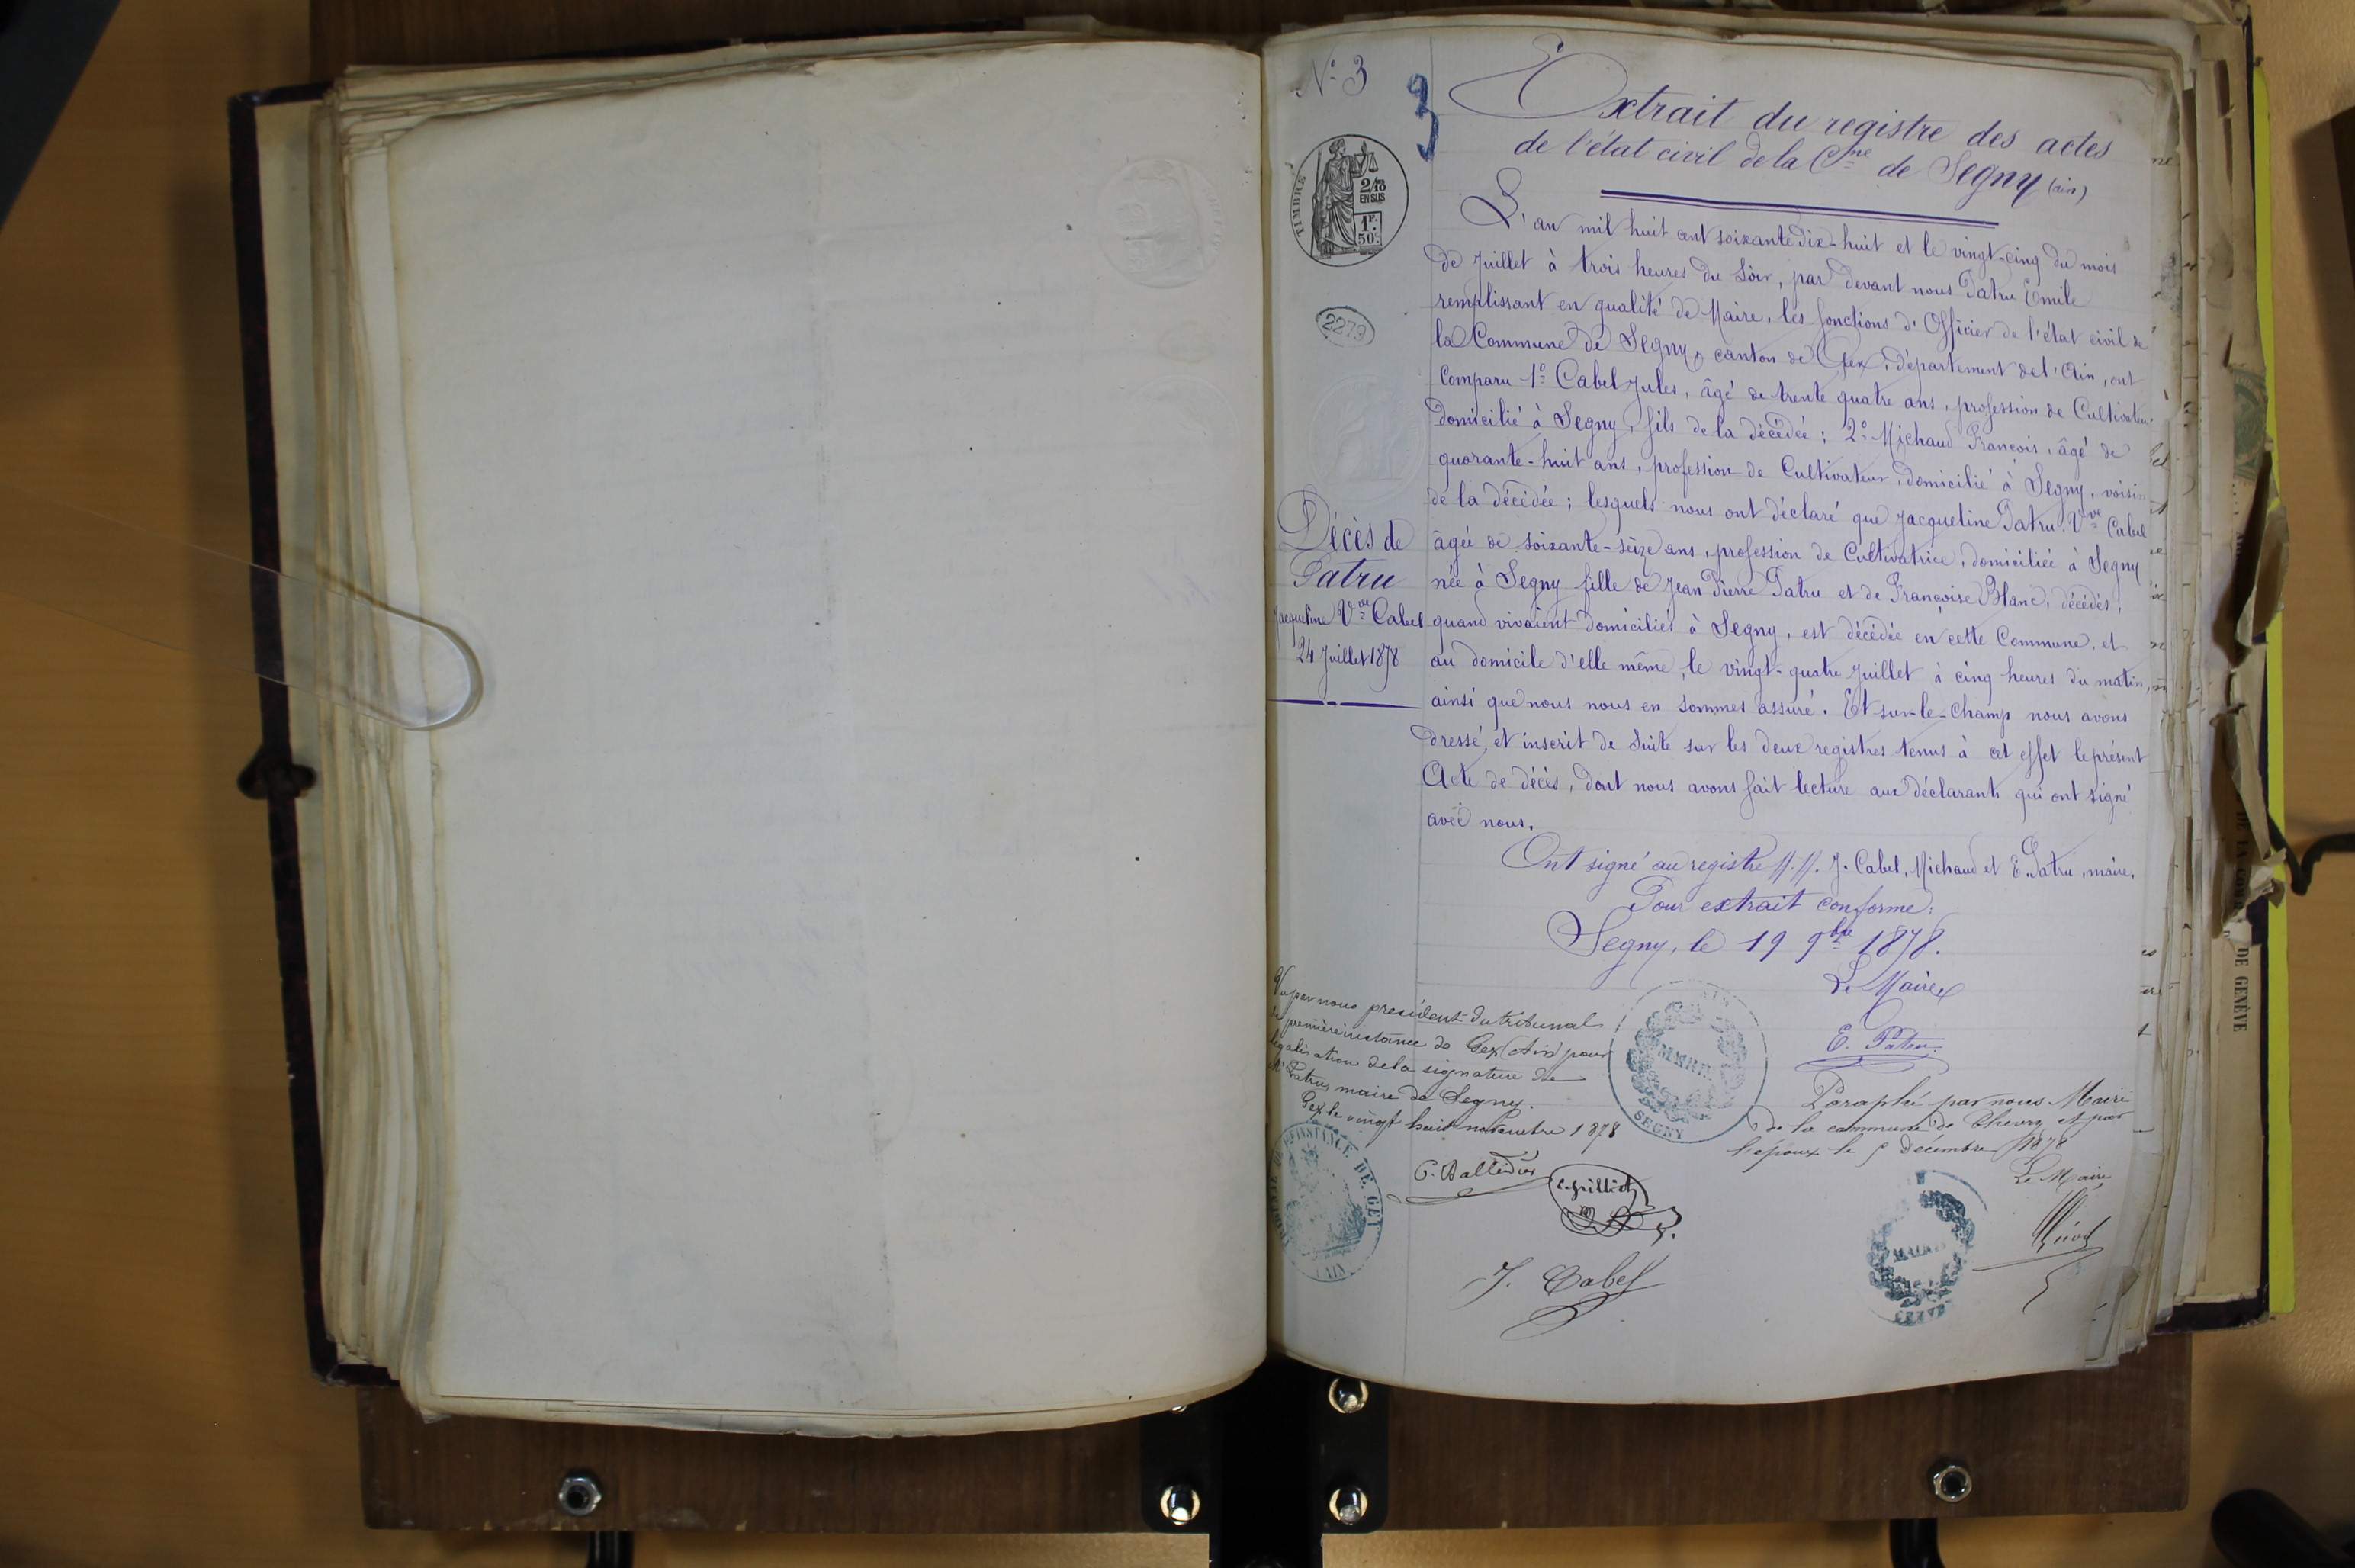 N° 3
3
Extrait du registre des actes
de l'état civil de la Cne de Segny (ain)
TIMBRE
2/10
EN SUS
1F.
50c.
2279
L'an mil huit cent soixante dix-huit et le vingt-cinq du mois
de Juillet à trois heures du Soir, par devant nous Patru Emile
remplissant en qualité de Maire, les fonctions d'Officier de l'état civil de
la Commune de Segny, canton de Gex, département de l'Ain, ont
Comparu 1° Cabel Jules, âgé de trente quatre ans, profession de Cultivateur
domicilié à Segny, fils de la décédée; 2° Michaud François, âgé de
quarante-huit ans, profession de Cultivateur, domicilié à Segny, voisin
de la décédée; lesquels nous ont déclaré que Jacqueline Patru Vve Cabel
âgée de soixante-seize ans, profession de Cultivatrice, domiciliée à Segny
née à Segny fille de Jean Pierre Patru et de Françoise Blanc, décédés,
quand vivaient domiciliés à Segny, est décédée en cette Commune, et
au domicile d'elle même, le vingt-quatre Juillet à cinq heures du matin,
ainsi que nous nous en sommes assuré. Et sur-le-champ nous avons
dressé, et inscrit de Suite sur les deux registres tenus à cet effet le présent
Acte de décès, dont nous avons fait lecture aux déclarants qui ont signé
avec nous.
Décès de
Patru
Jacqueline Vve Cabel
24 Juillet 1878
Ont signé au registre M.M. J. Cabel, Michaud et E. Patru, maire.
Pour extrait conforme:
Segny, le 19 9bre 1878.
Le Maire
E. Patru
Vu par nous président du tribunal
de première instance de Gex (Ain) pour
légalisation de la signature de
Mr Patru maire de Segny.
Gex le vingt huit novembre 1878
MAIRIE
SEGNY
Paraphé par nous Maire
de la commune de Chevry et par
l'époux le 5 Décembre 1878
Le Maire
INSTANCE DE GEX
AIN
J. Cabel
MAIRIE
DE GENÈVE